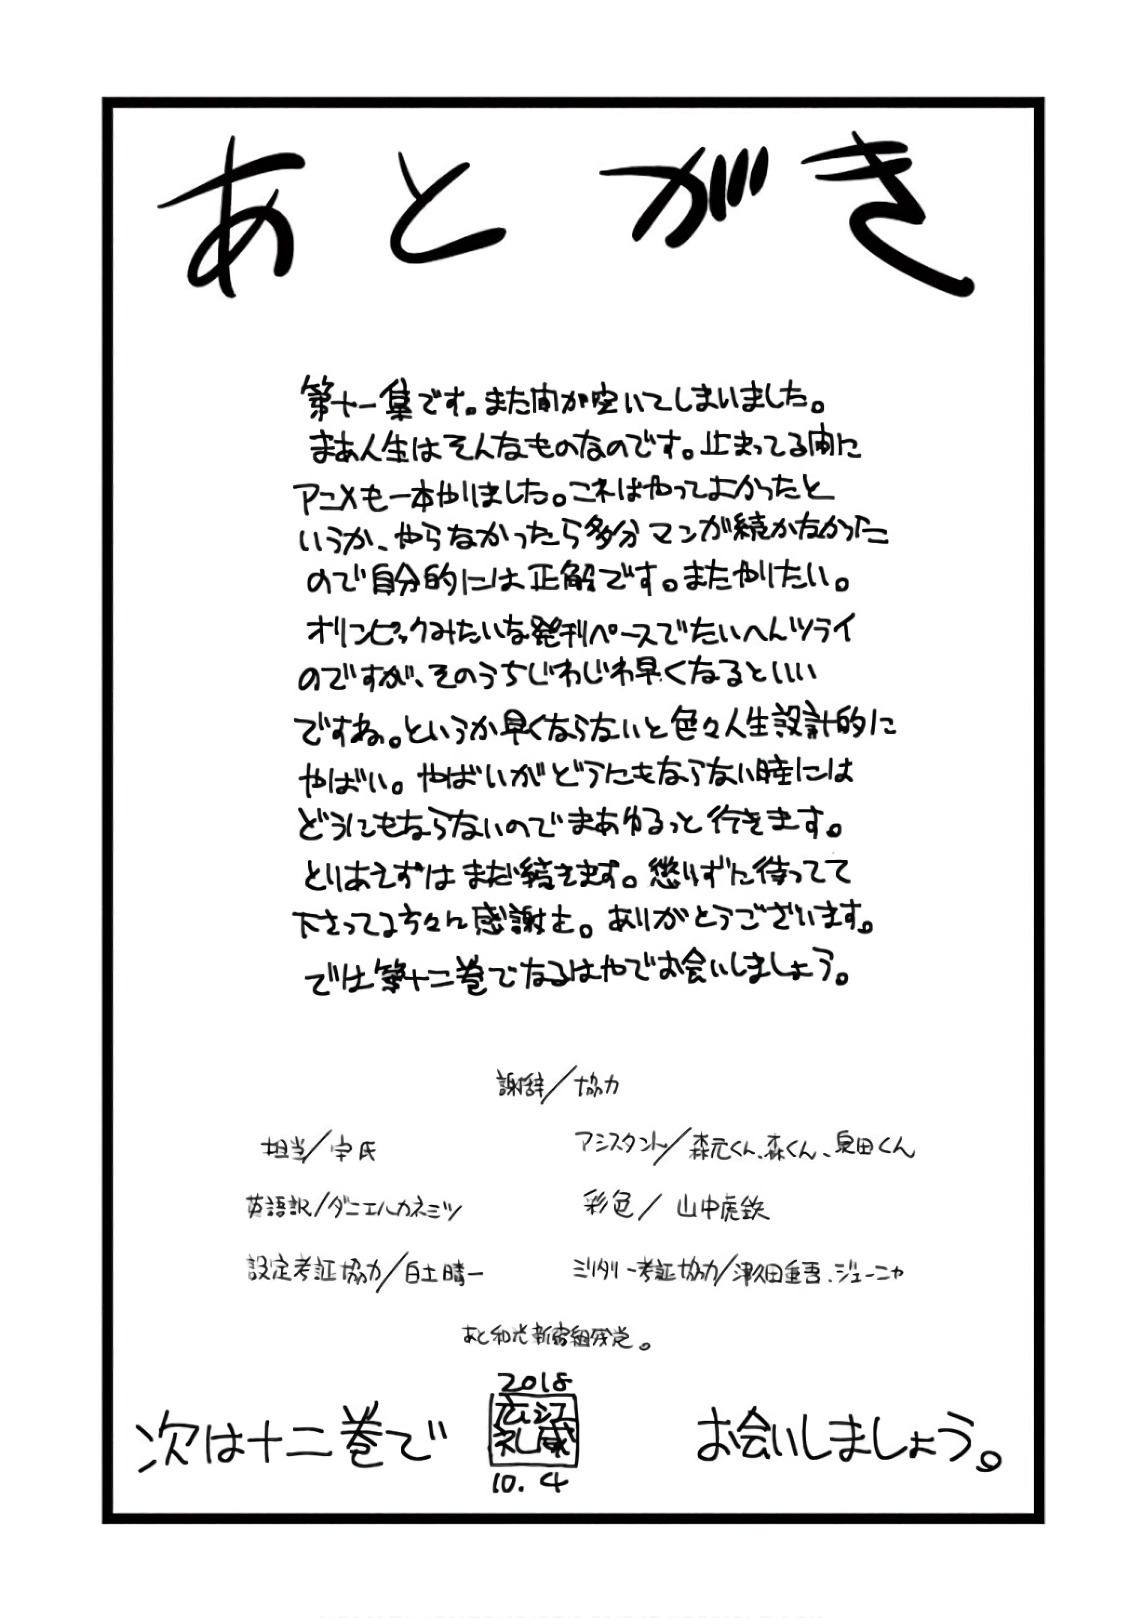 あとがき
第十一集です。また間が空いてしまいました。
まあ人生はそんなものなのです。止まってる間に
アニメも一本やりました。これはやってよかったと
いうか、やらなかったら多分マンガ続かなかった
ので自分的には正解です。またやりたい。
オリンピックみたいな発刊ペースでたいへんツライ
のですが、そのうちじわじわ早くなるといい
ですね。というか早くならないと色々人生設計的に
やばい。やばいがどうにもならない時には
どうにもならないのでまあゆるっと行きます。
とりあえずはまだ続きます。懲りずに待ってて
下さってる方々に感謝を。ありがとうございます。
では第十二巻でなるはやでお会いしましょう。
謝辞/協力
担当/宇氏
アシスタント/森元くん、森くん、泉田くん
英語訳/ダニエルカネミツ
彩色/山中虎鉄
設定考証協力/白土晴一
ミリタリー考証協力/津久田重吾、ジューニャ
あと和光新宿組残党。
次は十二巻で
2018
広江
礼威
10.4
お会いしましょう。